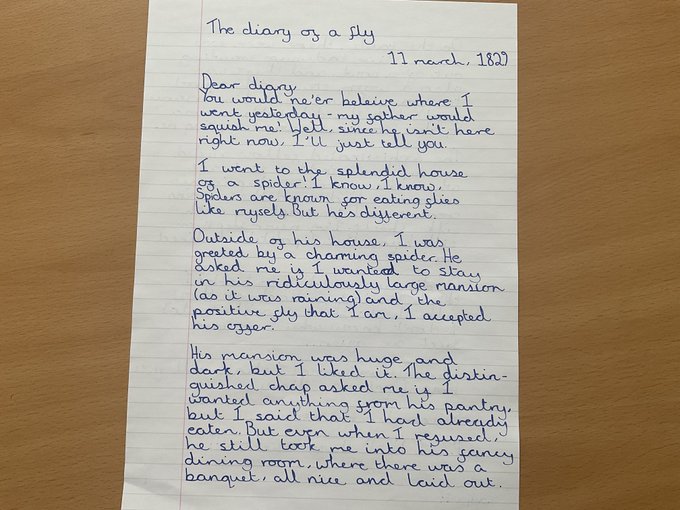 The diary of a fly
11 march, 1829
Dear diary,
You would ne'er beleive where I
went yesterday - my father would
squish me! Well, since he isn't here
right now, I'll just tell you.
I went to the splendid house
of a spider! I know, I know,
Spiders are known for eating flies
like myself. But he's different.
Outside of his house, I was
greeted by a charming spider. He
asked me if I wanted to stay
in his ridiculously large mansion
(as it was raining) and the
positive fly that I am, I accepted
his offer.
His mansion was huge and
dark, but I liked it. The distin-
guished chap asked me if I
wanted anything from his pantry,
but I said that I had already
eaten. But even when I refused,
he still took me into his fancy
dining room, where there was a
banquet, all nice and laid out.